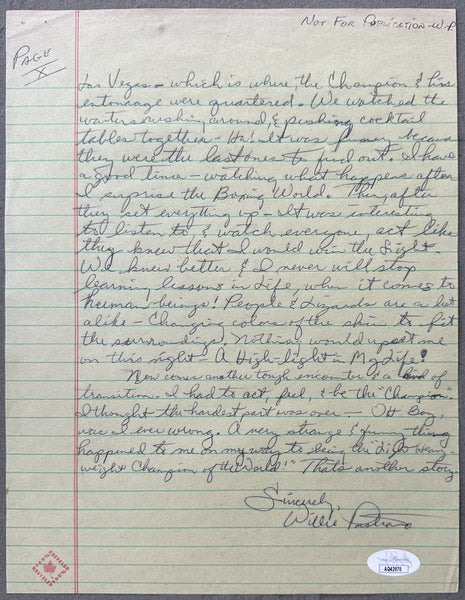 NOT FOR PUBLICATION - W.P.
PAGE
X
Las Vegas - which is where, the Champion & his
entourage were quartered. We watched the
waiters rushing around, & pushing cocktail
tables together - Ha! It was funny, because
they were the last ones to find out. I have
a good time - watching what happens after
I surprise the Boxing World. Then, after
they set everything up - It was interesting
to listen to & watch, everyone, act like
they knew that I would win the fight.
We knew better & I never will stop
learning lessons in Life, when it comes to
human-beings! People & Lizards are a lot
alike - Changing colors of the skin to fit
the surroundings. Nothing would upset me
on this night - A High-light in My Life!
Now comes another tough encounter & a kind of
transition. I had to act, feel, & be the "Champion".
I thought the hardest part was over - Oh Boy,
was I ever wrong. A very strange & funny thing
happened to me on my way to being the "Light Heavy-
weight Champion of the World!" Thats another story
Sincerely,
Willie Pastrano
AQ42970